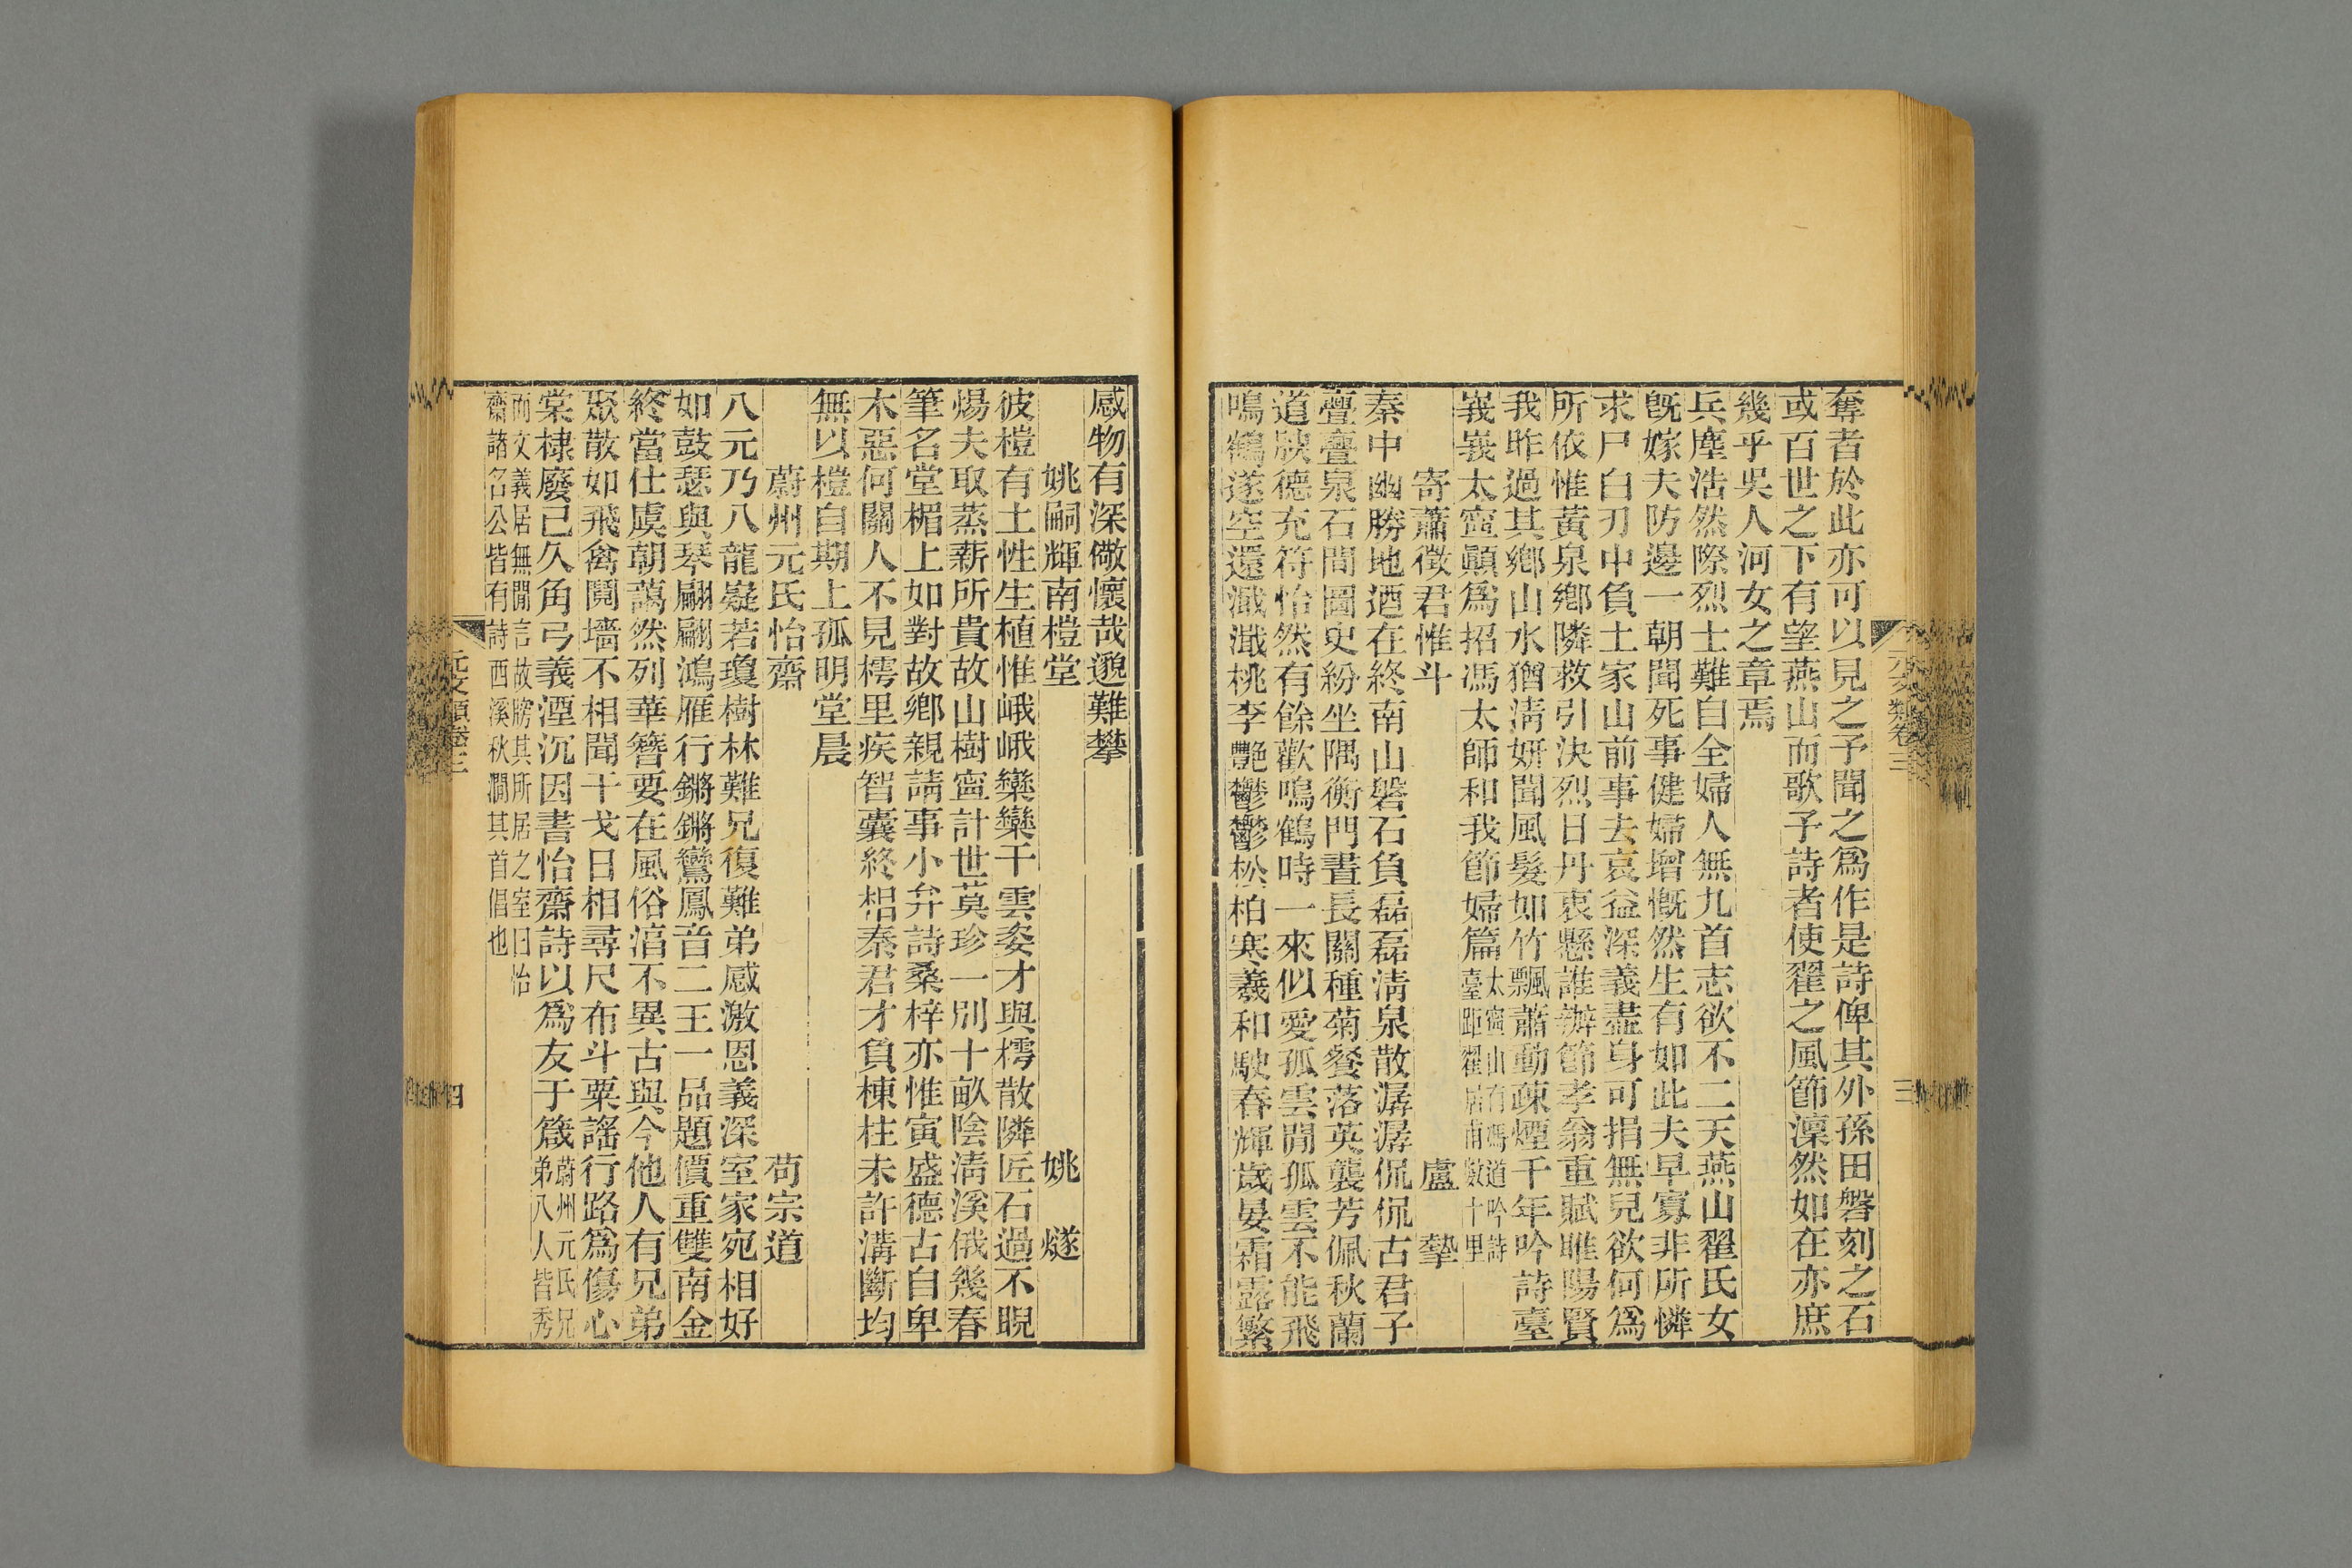 奪者於此亦可以見之予聞之爲作是詩俾其外孫田磐刻之石
或百世之下有望燕山而歌予詩者使翟之風節凜然如在亦庶
幾乎吳人河女之章焉
兵塵浩然際烈士難自全婦人無九首志欲不二天燕山翟氏女
旣嫁夫防邊一朝聞死事健婦增慨然生有如此夫早寡非所憐
求尸白刃中負土家山前事去哀益深義盡身可捐無兒欲何爲
所依惟黃泉鄉隣救引決烈日丹衷懸誰辦節孝翁重賦睢陽賢
我昨過其鄉山水猶淸妍聞風髮如竹飄蕭動疎煙千年吟詩臺
峩峩太寧顚爲招馮太師和我節婦篇太寧山有馮道吟詩
臺距翟居南數十里
寄蕭徵君惟斗　盧摯
秦中幽勝地迺在終南山磐石負磊磊淸泉散潺潺侃侃古君子
亹亹泉石間圖史紛坐隅衡門晝長關種菊餐落英襲芳佩秋蘭
道腴德充符怡然有餘歡鳴鶴時一來似愛孤雲閒孤雲不能飛
鳴鶴遂空還濈濈桃李艷鬱鬱松柏寒羲和駛春輝歲晏霜露繁
元文類卷三
三
感物有深儆懷哉邈難攀
姚嗣輝南榿堂　姚　燧
彼榿有土性生植惟峨峨欒欒干雲姿才與樗散隣匠石過不睨
煬夫取蒸薪所貴故山樹寧計世莫珍一別十畝陰淸溪俄幾春
筆名堂楣上如對故鄉親請事小弁詩桑梓亦惟寅盛德古自卑
木惡何關人不見樗里疾智囊終相秦君才負棟柱未許溝斷均
無以榿自期上孤明堂晨
蔚州元氏怡齋　荀宗道
八元乃八龍嶷若瓊樹林難兄復難弟感激恩義深室家宛相好
如鼓瑟與琴翩翩鴻雁行鏘鏘鸞鳳音二王一品題價重雙南金
終當仕虞朝藹然列華簪要在風俗渟不異古與今他人有兄弟
聚散如飛禽鬩墻不相聞干戈日相尋尺布斗粟謠行路爲傷心
棠棣廢已久角弓義湮沉因書怡齋詩以爲友于箴蔚州元氏兄
弟八人皆秀
而文義居無閒言故牓其所居之室曰怡
齋諸名公皆有詩西溪秋澗其首倡也
元文類卷三
四